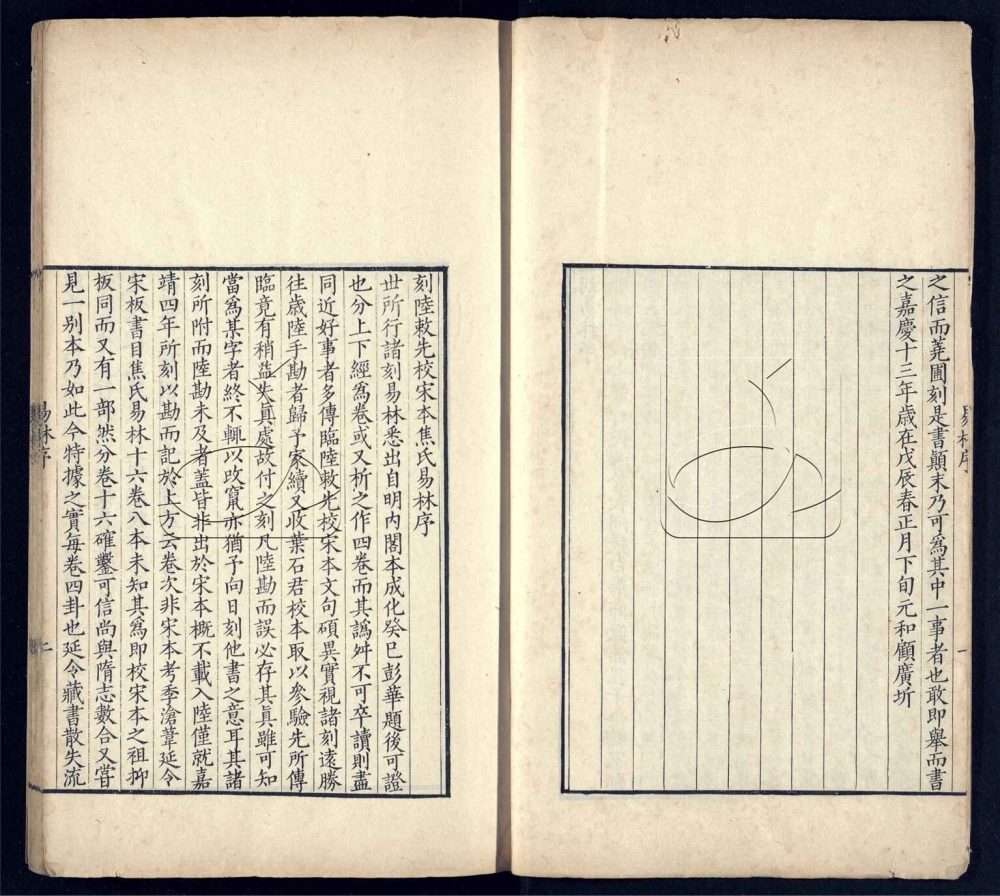 之信而蕘圃刻是書顛末乃可爲其中一事者也敢即舉而書
之嘉慶十三年歲在戊辰春正月下旬元和顧廣圻
易林序
一
刻陸敕先校宋本焦氏易林序
世所行諸刻易林悉出自明內閣本成化癸巳彭華題後可證
也分上下經爲卷或又析之作四卷而其譌舛不可卒讀則盡
同近好事者多傳臨陸敕先校宋本文句碩異實視諸刻遠勝
往歲陸手勘者歸予家續又收葉石君校本取以參驗先所傳
臨竟有稍益失真處故付之刻凡陸勘而誤必存其真雖可知
當爲某字者終不輒以改竄亦猶予向日刻他書之意耳其諸
刻所附而陸勘未及者蓋皆非出於宋本概不載入陸僅就嘉
靖四年所刻以勘而記於上方云卷次非宋本考季滄葦延令
宋板書目焦氏易林十六卷八本未知其爲即校宋本之祖抑
板同而又有一部然分卷十六確鑿可信尚與隋志數合又嘗
見一别本乃如此今特據之實每卷四卦也延令藏書散失流
易林序
二